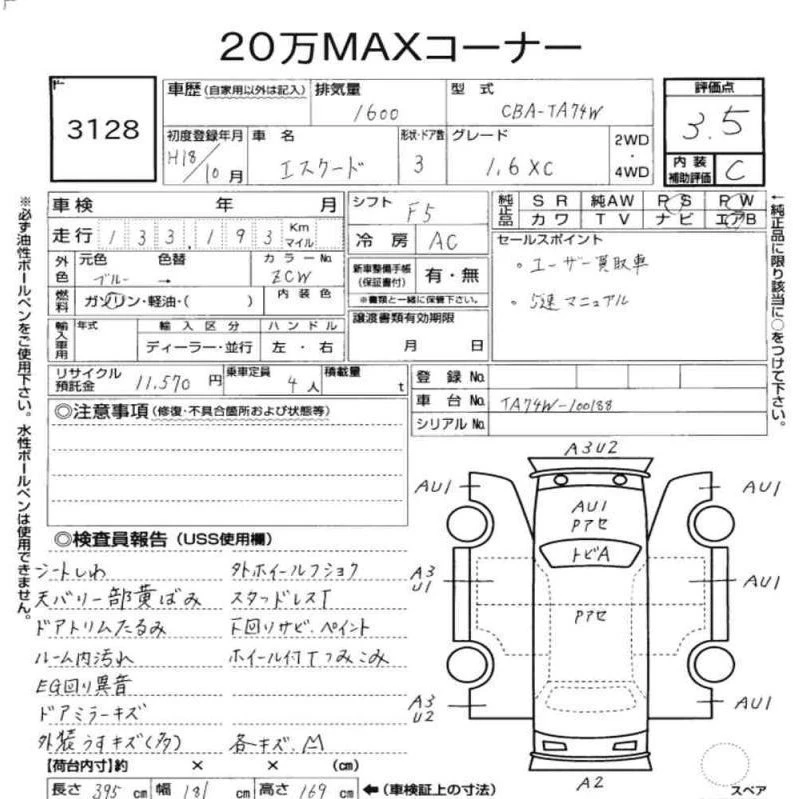 20万MAXコーナー
3128
車歴 (自家用以外は記入)
排気量
1600
型式
CBA-TA74W
評価点
3.5
初度登録年月
H18/10月
車名
エスクード
形状・ドア数
3
グレード
1.6XC
2WD
・
4WD
内装
補助評価
C
車検 年 月
走行 133,193 Km マイル
シフト
F5
冷房 AC
純正品
SR 純AW PS PW
カワ TV ナビ エアB
外色
元色 色替 カラーNo
ブルー → ZCW
新車整備手帳
(保証書付)
有・無
※書類と一緒に保管下さい。
セールスポイント
・ユーザー買取車
・5速マニュアル
燃料
ガソリン・軽油・( )
内装色
輸入車用
年式 輸入区分 ハンドル
ディーラー・並行 左・右
譲渡書類有効期限
月 日
リサイクル預託金 11,570円
乗車定員 4人
積載量 t
登録No
車台No TA74W-100188
シリアルNo
◎注意事項(修復・不具合箇所および状態等)
◎検査員報告 (USS使用欄)
シートしわ 外ホイールフショク
天バリ一部黄ばみ スタッドレスT
ドアトリムたるみ 下回りサビ、ペイント
ルーム内汚れ ホイール付Tつみこみ
EG回り異音
ドアミラーキズ
外装うすキズ(多) 各キズ、凹
【荷台内寸】約 × × (cm)
長さ 395 cm 幅 181 cm 高さ 169 cm ←(車検証上の寸法)
A3U2
AU1
AU1
AU1
Pアセ
トビA
A3
U1
AU1
Pアセ
A3
U2
AU1
A2
スペア
※必ず油性ボールペンをご使用下さい。水性ボールペンは使用できません。
←純正品に限り該当に○をつけて下さい。